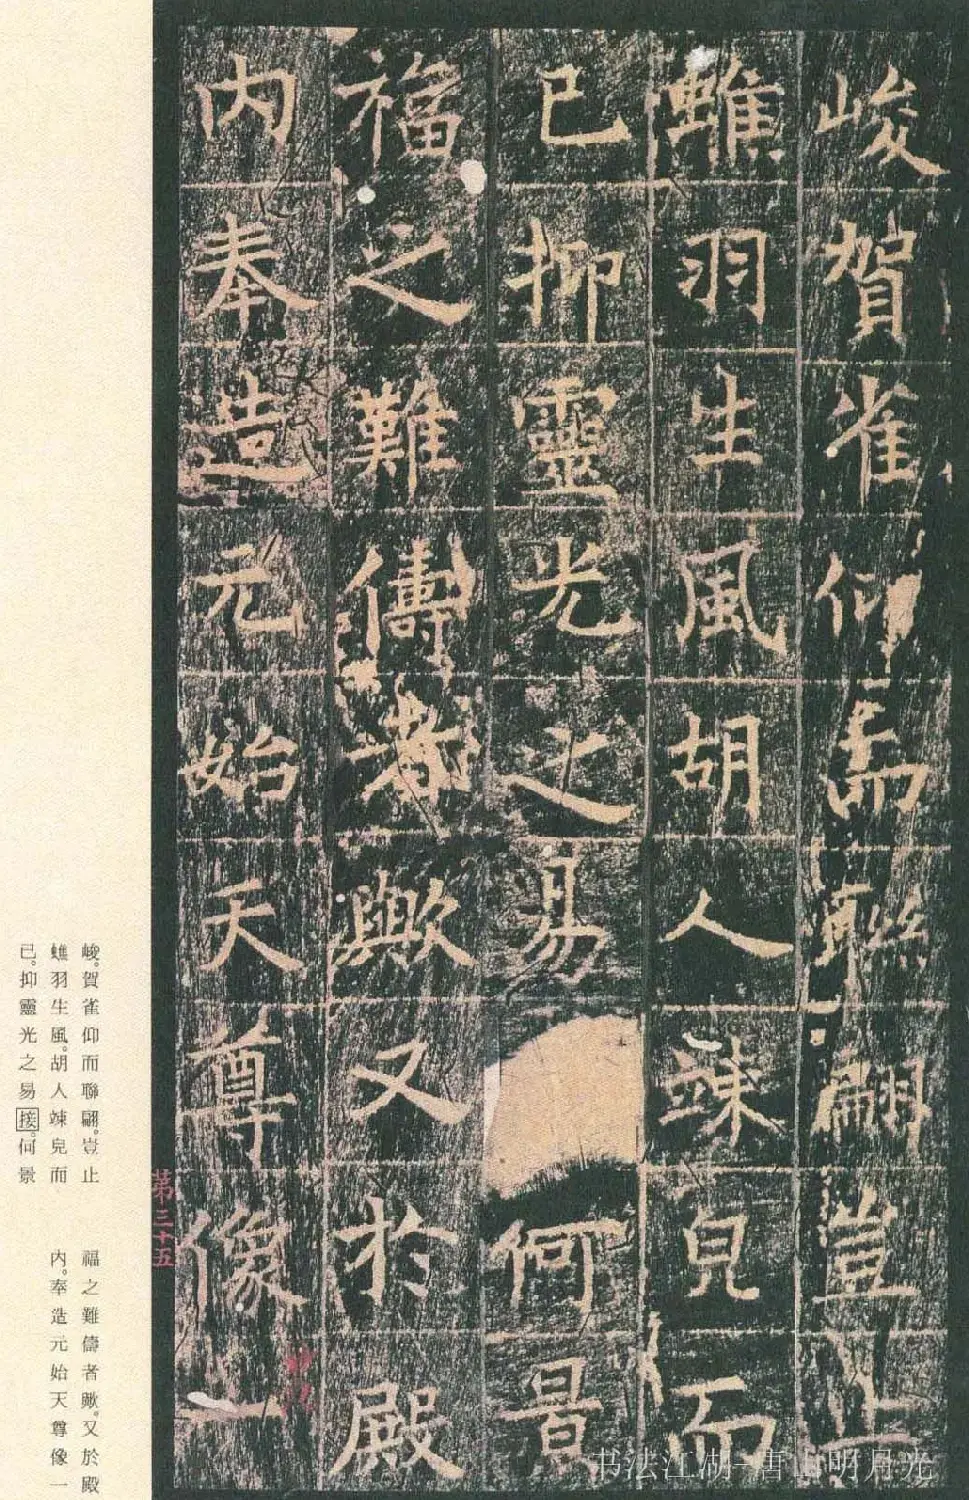 峻賀雀仰而聯翩豈止
蟭羽生風胡人竦皃而
已抑靈光之易何景
福之難儔者歟又於殿
内奉造元始天尊像一
第三十五
峻。賀雀仰而聯翩。豈止
蟭羽生風。胡人竦皃而
已。抑靈光之易接。何景
福之難儔者歟。又於殿
内。奉造元始天尊像一
书法江湖-唐山明月光